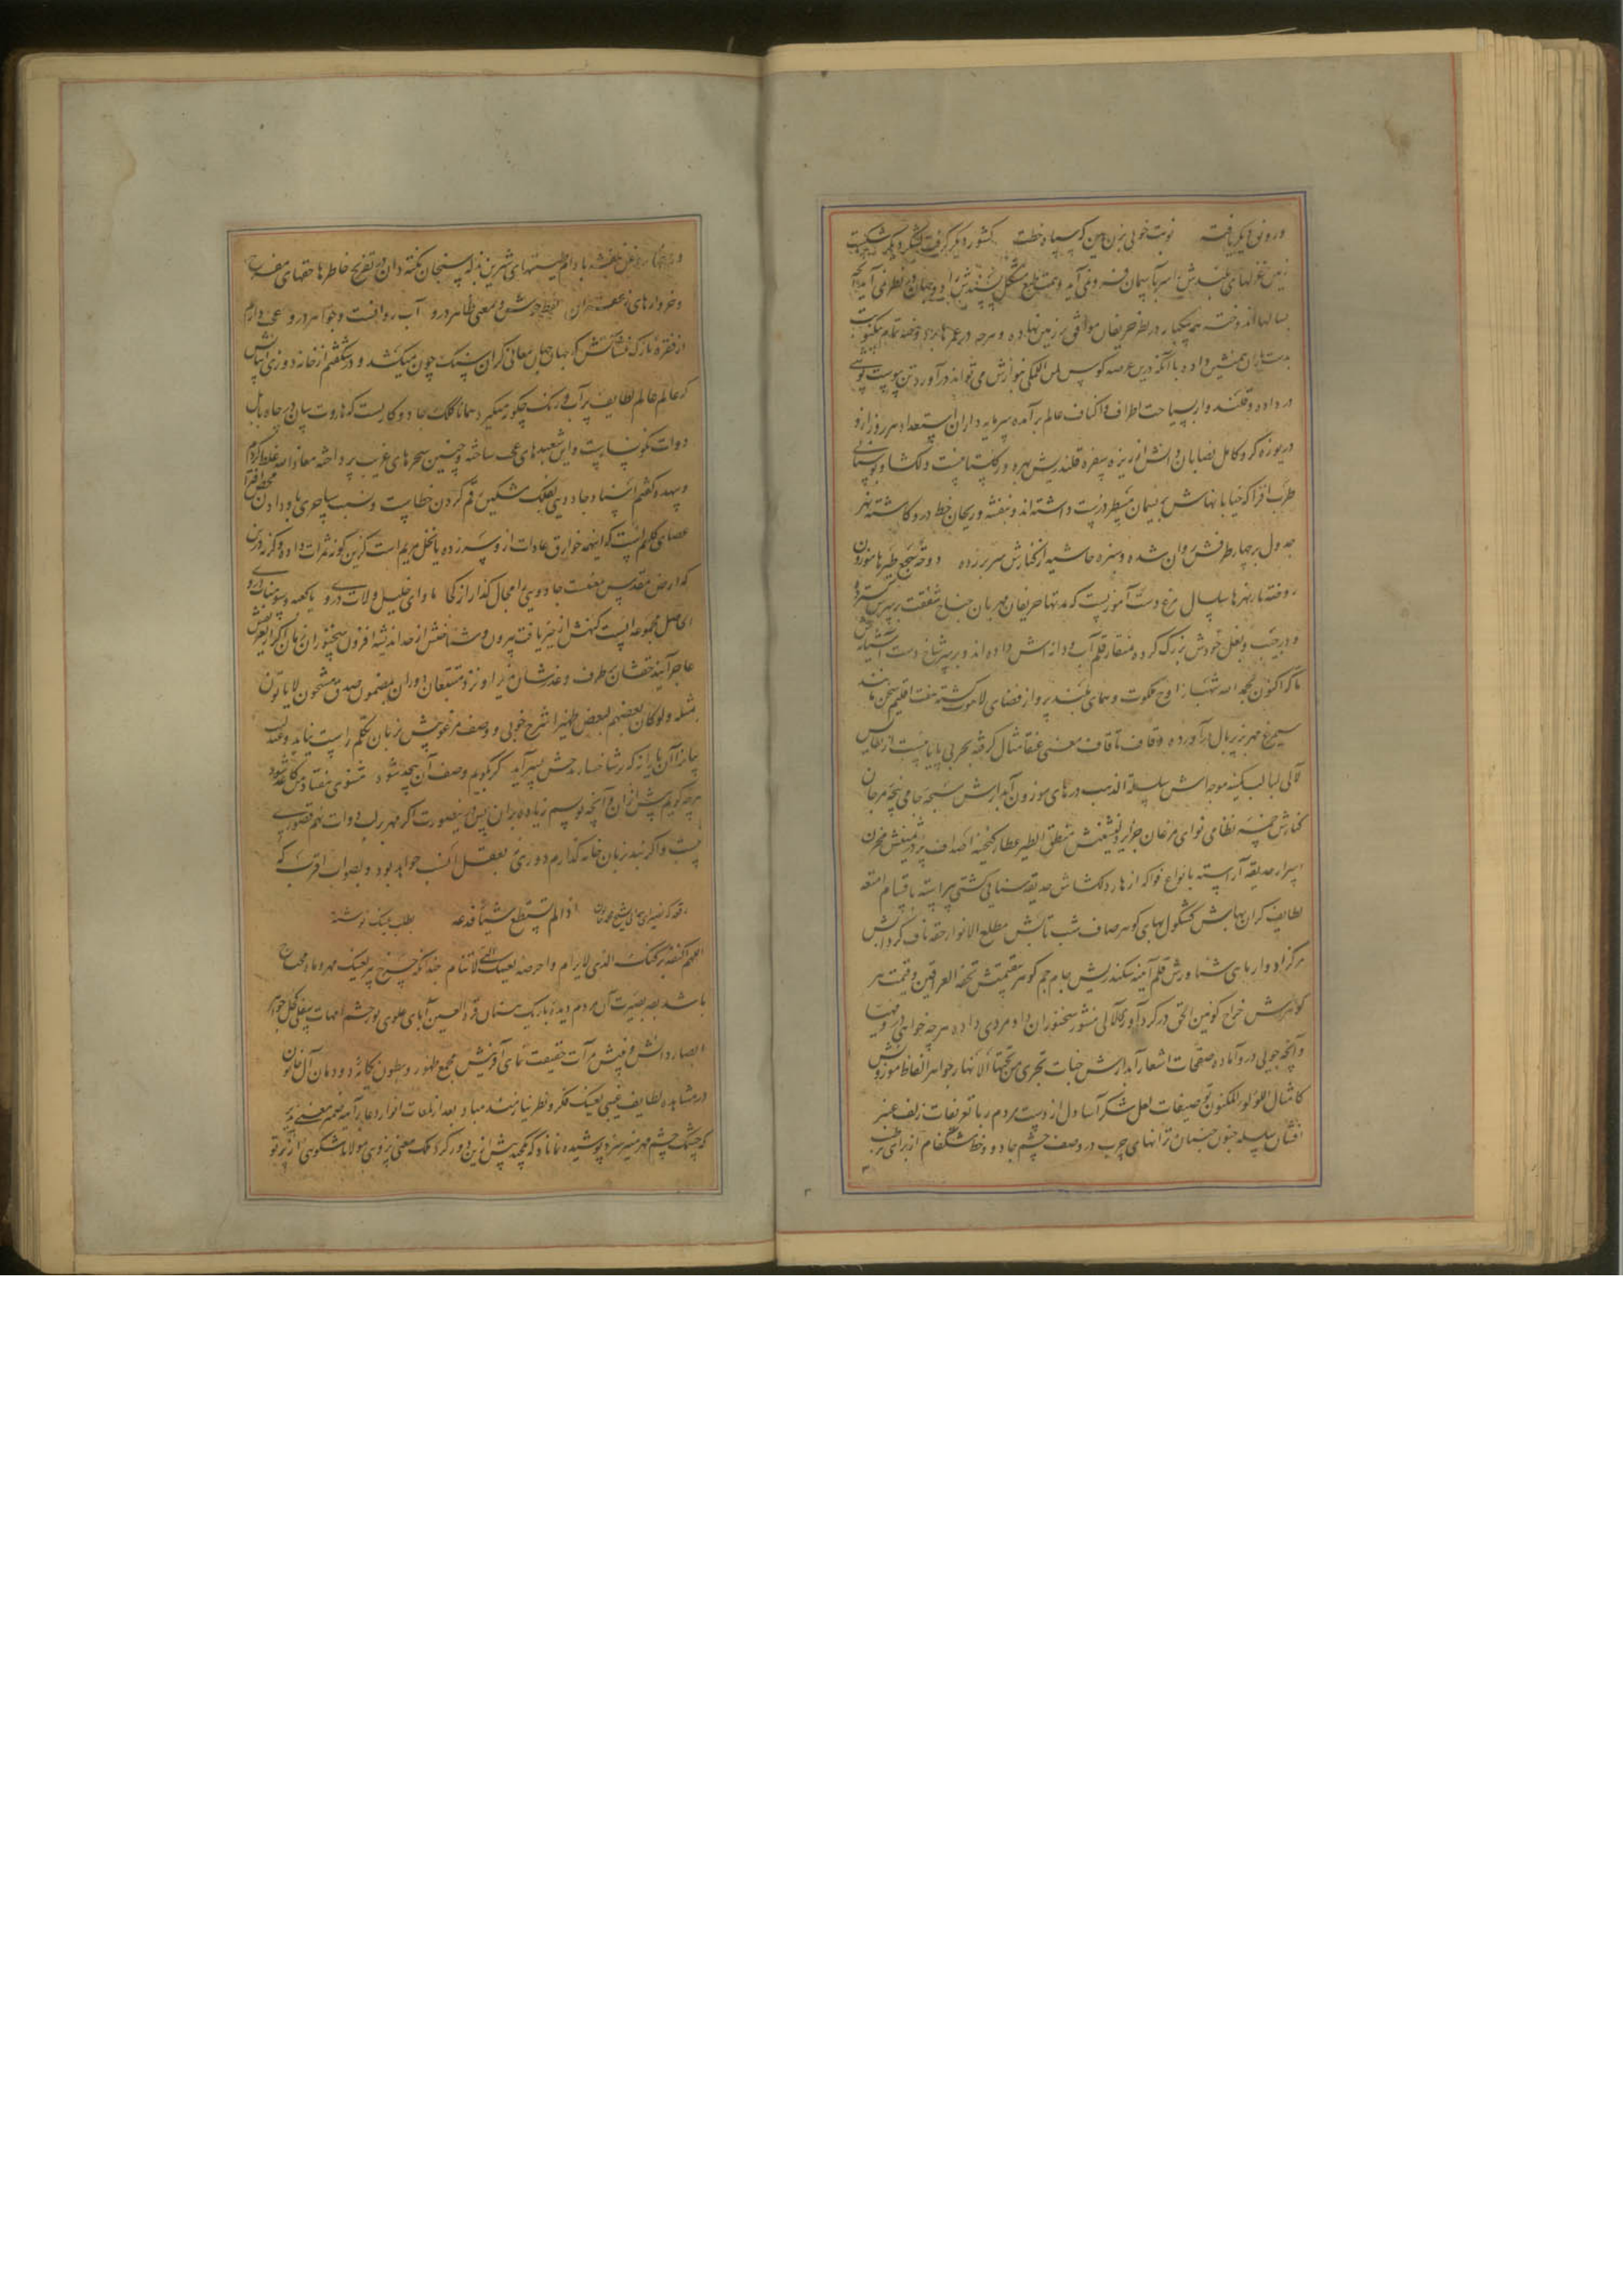 و رونق دیگر یافته نوبت خوبی بزن هین که سپاه خطت کشور دیگر گرفت لشکر دیگر شکست
زمین غزلهای بلندش سر بآسمان فرو نمی آید و همت طبع مشکل پسندش را دو جهان در نظر نمی آید آنچه
بسالها اندوخته همه یکبار در نظر حریفان موافق بر زمین نهاده و هرچه در عمرها
بدست یاران همنشین داده با آنکه درین عرصه کوس لمن الملکی نوازش می تواند درآورد تن بپوست پوشی
در داده و قلندروار بسیاحت اطراف و اکناف عالم برآمده سرمایه داران استعداد هر روز ازو
دریوزه گر و کامل نصابان دانش از ریزه سفره قلندریش بهره ور گلستانیست دلگشا و بوستانی
طرب افزا که خیابانهاش بریسمان مسطر درست داشته اند و بنفشه و ریحان خط درو کاشته نهر
جدول بر چهار طرفش روان شده و سبزه حاشیه از کنارش سر بر زده دوحة سجع طیرها موزون
روضة ماء نهرها سلسال مرغ دست آموزیست که مدتها حریفان مهربان جناح شفقت بر سرش گسترده
و در جیب و بغل خودش بزرگ کرده بمنقار قلم آب و دانه اش داده اند و بر سر شاخ دست آشیانش
تا که اکنون بحمد الله شهباز اوج ملکوت و همای بلند پرواز فضای لاهوت گشته هفت اقلیم سخن مانند
سیمرغ مهر بزیر بال درآورده و قاف تا قاف معنی عنقا مثال گرفته بحری بی پایانیست از نفایس
لآلی لبالب کمینه موجه اش سلسلة الذهب درهای موزون آبدارش سبحه جامی پنجه مرجان
کنارش خمسه نظامی نوای مرغان جزایر دلنشینش منطق الطیر عطار گنجینه اصداف پر در ثمینش مخزن
اسرار حدیقه آراسته بانواع فواکه ازهار دلگشاش حدیقه سنایی کشتی پیراسته باقسام امتعه
لطایف گران بهاش کشکول بهایی گوهر صاف شب تابش مطلع الانوار حقه ناف گردابش
مرکز ادوار ماهی شناورش قلم آینه سکندریش جام جم گوهر بیقیمتش تحفة العراقین و قیمت هر
گوهرش خراج کونین الحق در گردآوری لآلی منثور سخنوران داد مردی داده هرچه خواهی درو مهیا
و آنچه جویی درو آماده صفحات اشعار آبدارش جنات تجری من تحتها الانهار جواهر الفاظ موزونش
کامثال اللؤلؤ المکنون توصیفات لعل شکر آسا دل از دست مردم ربا تعریفات زلف عنبر
افشان سلسله جنبان جنون ترانهای چرب در وصف چشم جادو و خط مشکفام از برای
روغن بنفشه بادام بیتهای شیرین بذله سنجان نکته دان در تفریح خاطرها حقهای مفرح
و خروارهای زعفران لفظ خوش و معنی ظاهر درو آب روانست و جواهر درو عجب دارم
از فقره نازک که جبال جبال معانی گران سنگ چون میکشد و در شگفتم از خانه دوزی
که عالم عالم لطایف پر آب و رنگ چگونه میگیرد همانا کلک جادو کاریست که هاروت سان در چاه بابل
دوات نگونسارست و این شعبدهای عجب ساخته و چنین سحرهای غریب پرداخته معاذ الله غلط کردم
و بیهده گفتم اسناد جادویی بکلک مشکین رقم کردن خطاست و نسبت ساحری باو دادن محض افترا
عصای کلیم است که اینهمه خوارق عادات ازو سر زده یا نخل مریم است کزین گونه ثمرات داده وگرنه درین
که ارض مقدس معنیست جادویی را مجال گذار از کجا مأوای خلیل و لات درو یا کعبه و سومنات درو
الحاصل مجموعه ایست کنهش از حیز یافت بیرون و شناختش از حد اندیشه افزون سخنوران زمان اگر از تعریفش
عاجز آیند حقشان بطرف و عذرشان پذیرا و نزد متتبعان دوران مضمون صدق مشحون لا یأتون
بمثله ولو کان بعضهم لبعض ظهیرا شرح خوبی و وصف مرغوبیش زبان تکلم راست نیاید و عندلیب
بیان را آن یارا نه که بر شاخسار مدحش بسر آید گر بگویم وصف آن بیحد شود مثنوی هفتاد من کاغذ شود
هرچه گویم بیش از آن و آنچه نویسم زیاده بران پس درینصورت اگر مهر بر لب دوات نهم تصوری
نیست و اگر بند بر زبان خامه گذارم دوری نی بعقل انسب خواهد بود و بصواب اقرب که
اذا لم تستطع شیئا فدعه بطلب عینک نوشته
باشد بصر بصیرت آن مردم دیده باریک بینان قرة العین آبای علوی نور چشم امهات سفلی کحل جواهر
ابصار دانش و بینش مرآت حقیقت نمای آفرینش مجمع ظهور و بطون یگانه دودمان
در مشاهده لطایف غیبی بعینک فکر و نظر نیازمند مباد بعد از لمعات انوار دعا بر آینه ضمیر معنی پذیر
که چشمک چشم مهر منیر است پوشیده نماناد که یکچند پیش ازین